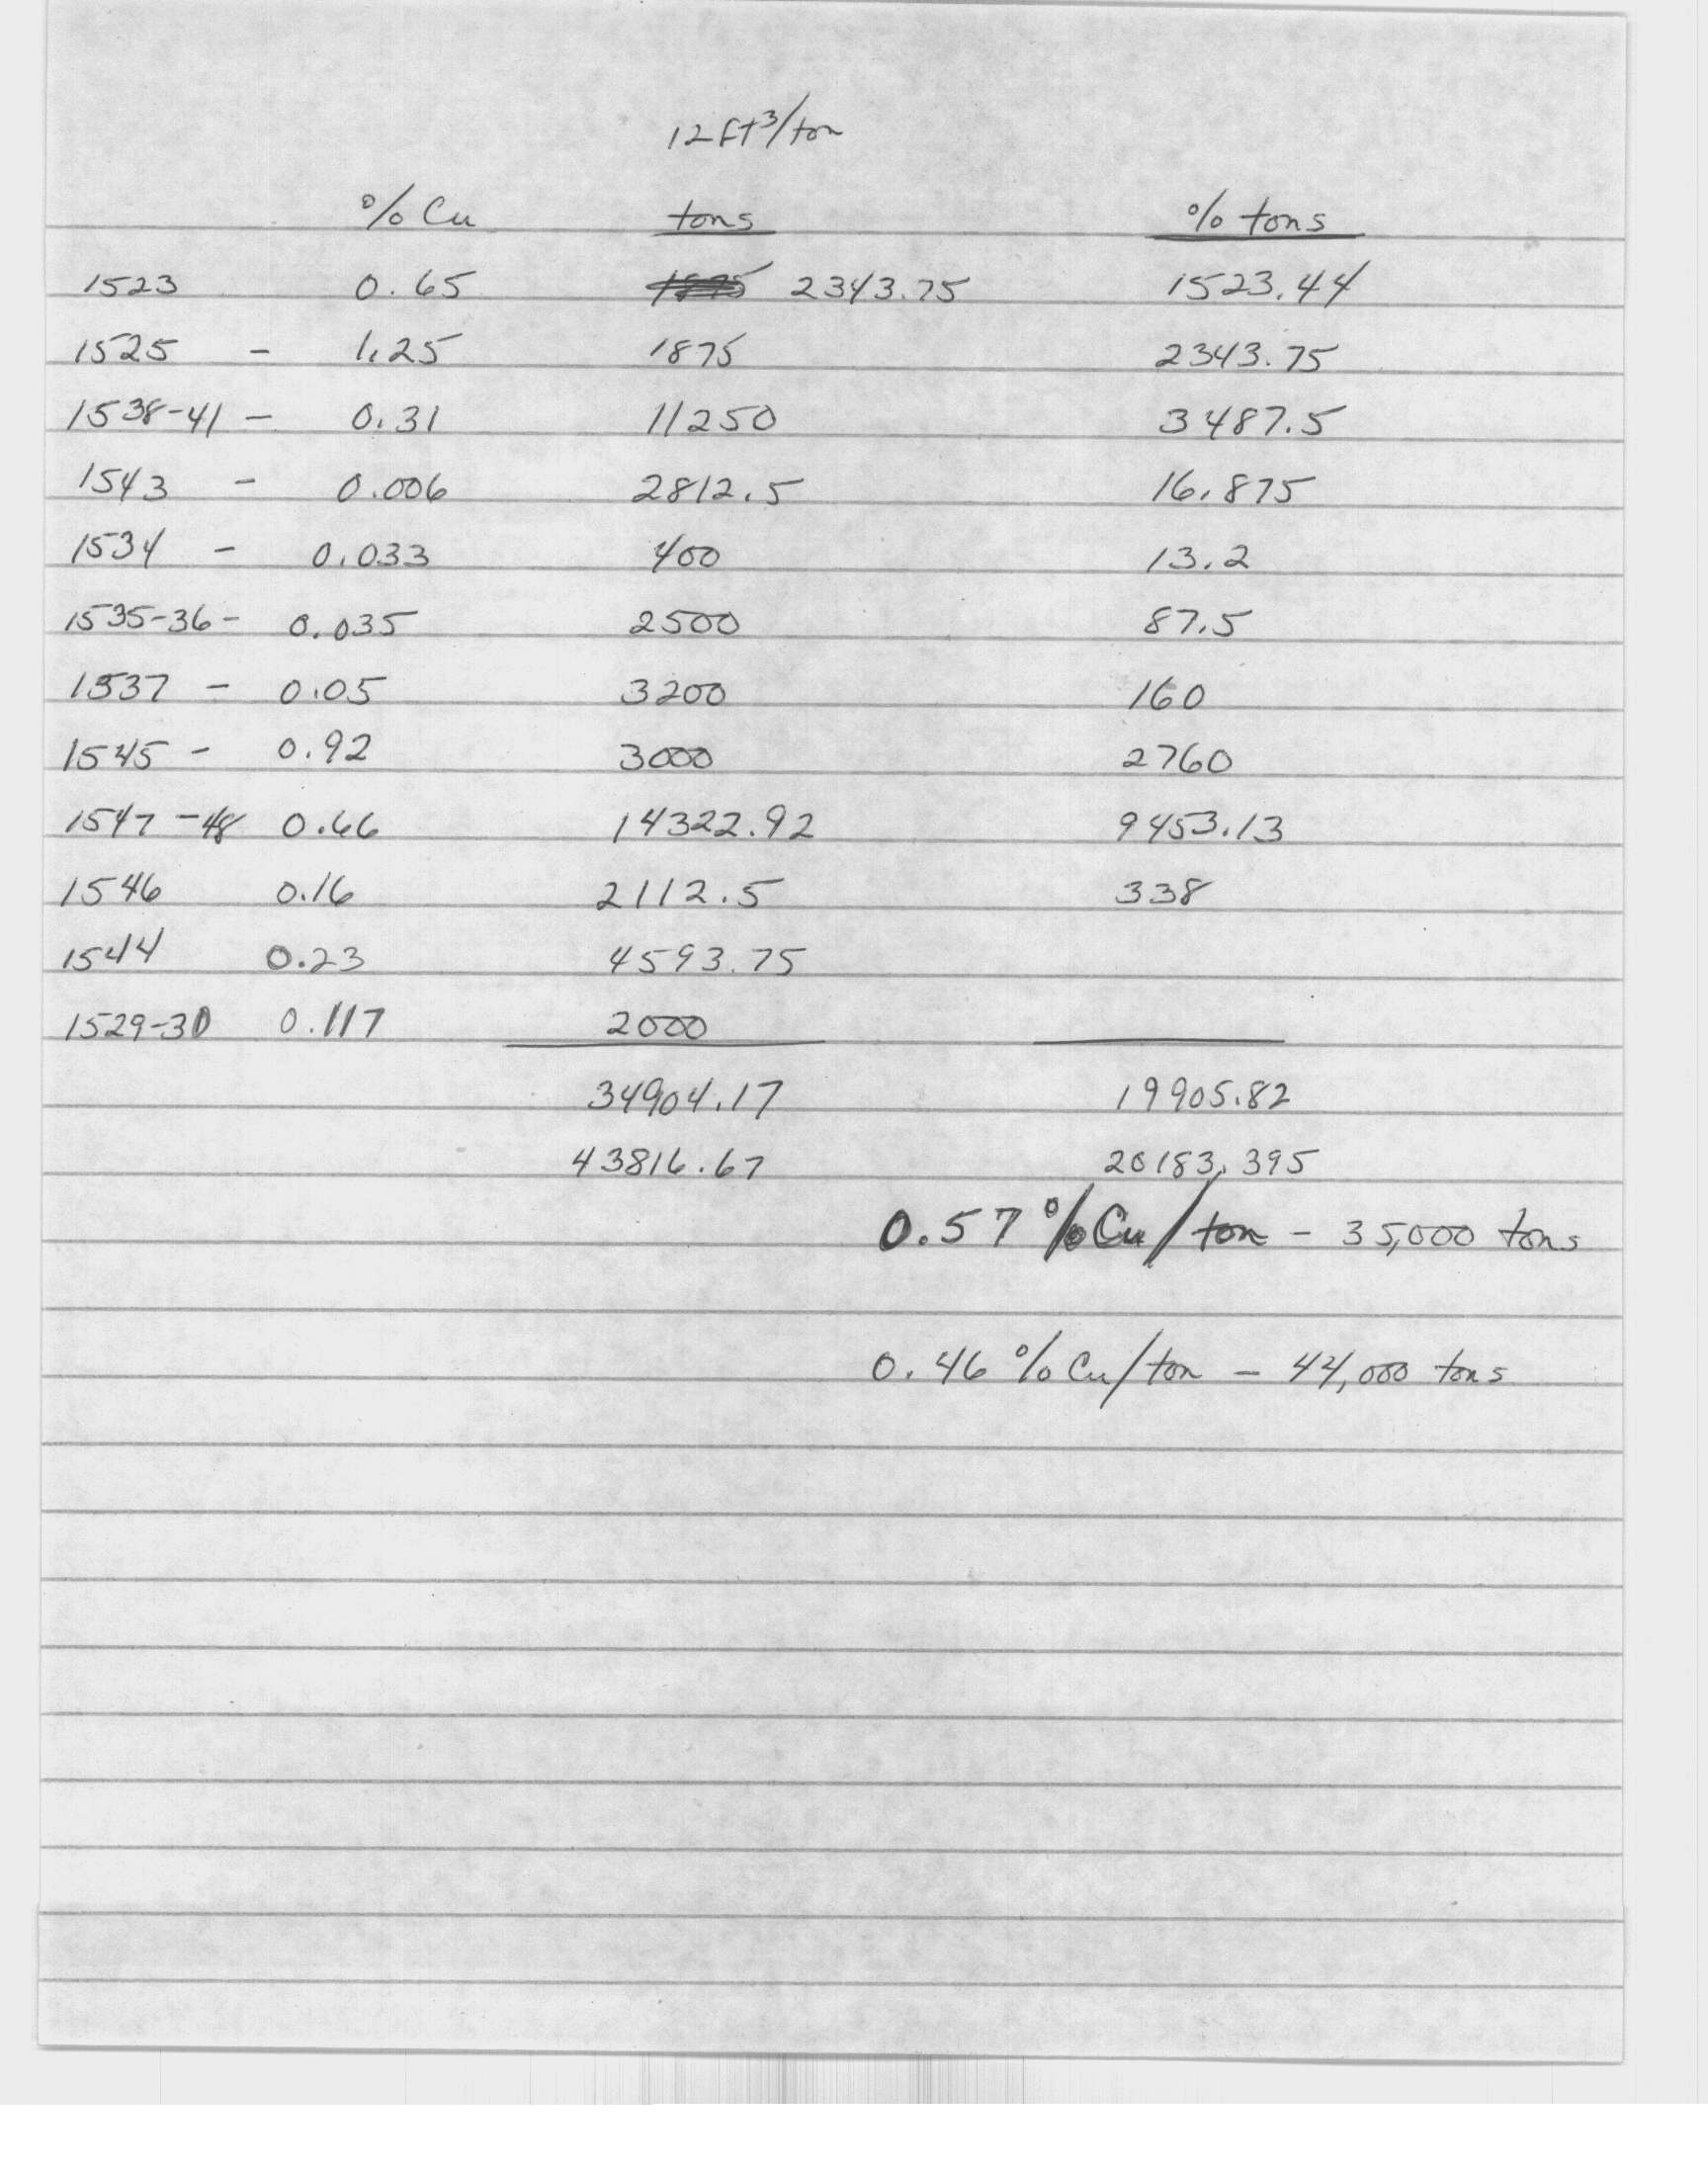 12 ft³/ton
% Cu tons % tons
1523 0.65 2343.75 1523.44
1525 - 1.25 1875 2343.75
1538-41 - 0.31 11250 3487.5
1543 - 0.006 2812.5 16.875
1534 - 0.033 400 13.2
1535-36 - 0.035 2500 87.5
1537 - 0.05 3200 160
1545 - 0.92 3000 2760
1547-48 0.66 14322.92 9453.13
1546 0.16 2112.5 338
1544 0.23 4593.75
1529-30 0.117 2000
34904.17 19905.82
43816.67 20183.395
0.57 % Cu/ton - 35,000 tons
0.46 % Cu/ton - 44,000 tons